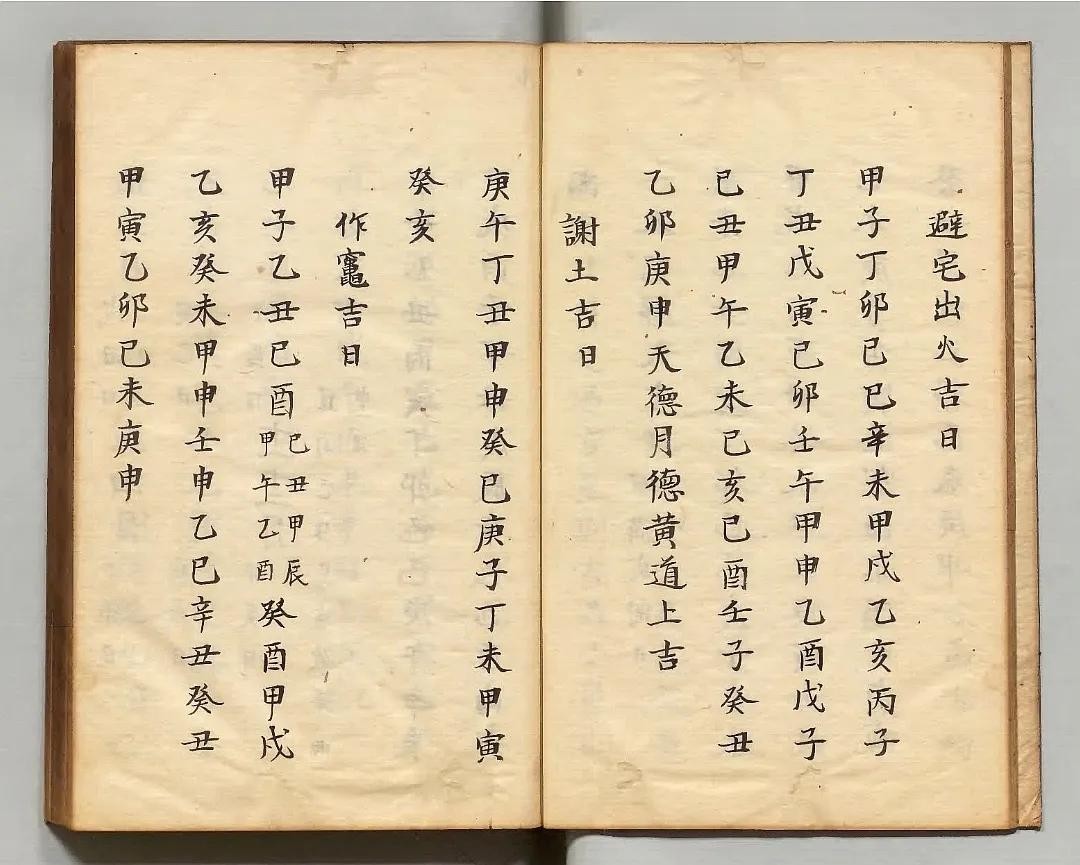 避宅出火吉日
甲子丁卯己巳辛未甲戌乙亥丙子
丁丑戊寅己卯壬午甲申乙酉戊子
己丑甲午乙未己亥己酉壬子癸丑
乙卯庚申天德月德黃道上吉
謝土吉日
庚午丁丑甲申癸巳庚子丁未甲寅
癸亥
作竈吉日
甲子乙丑己酉己丑甲辰甲午乙酉癸酉甲戌
乙亥癸未甲申壬申乙巳辛丑癸丑
甲寅乙卯己未庚申